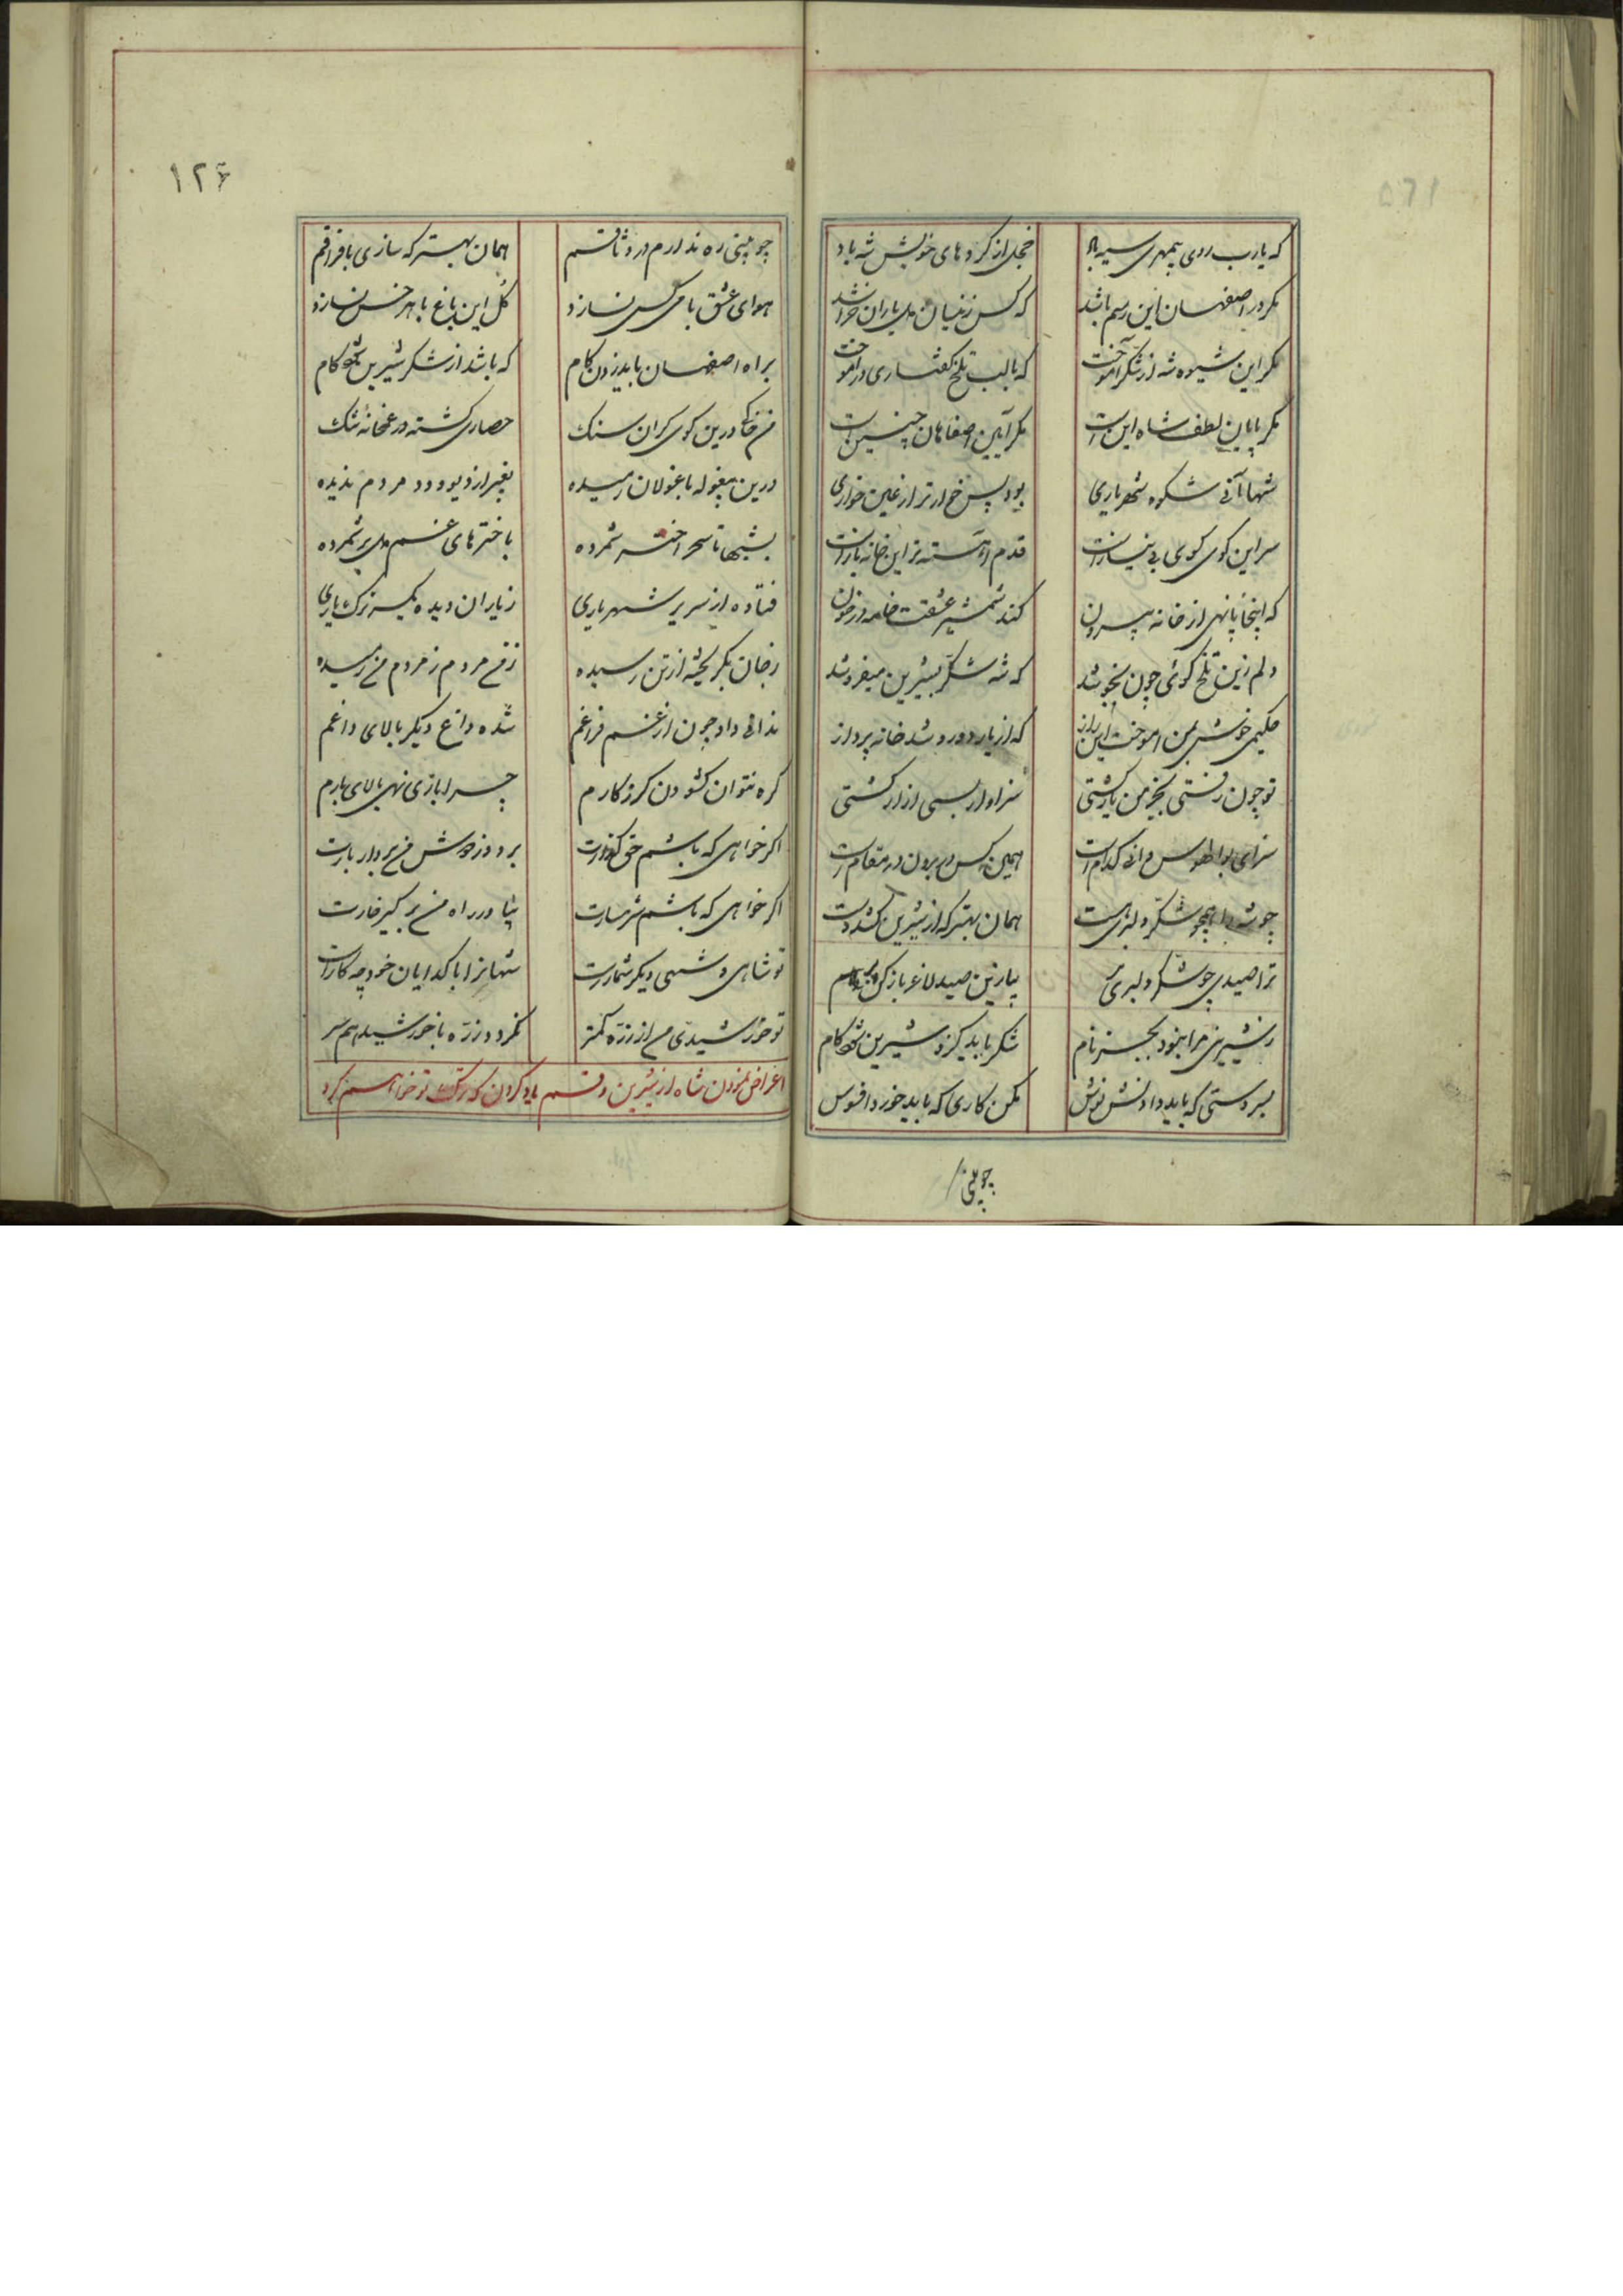 که یارب روی بیمهری سیه باد
خجل از کردهای خویش شه باد
مکر در اصفهان این رسم باشد
که کس زینسان دل یاران خراشد
مکر این شیوه شه از شکر آموخت
که با لب تلخ گفتاری در آموخت
مکر پایان لطف شاه اینست
مکر آیین اصفاهان چنین است
شها آنی شکوه شهریاری
بود پس خوارتر از عین خواری
سر این کوی کوی بی نیازانست
قدم آهسته نه این خانه
که اینجا پا نهی از خانه بیرون
کند شمشیر عشقت جامه در خون
دلم زین تلخ گوئی چون نجوشد
که شه شکر بشیرین میفروشد
حکیمی خوش بمن آموخت این راز
که از یار دورو شد خانه پرداز
تو چون رفتی بجز من یار کشتی
سزاوار بسی ازار کشتی
سرای بوالهوس دانی کدام است
همین کس در برون در مقام است
چو شه را همچو شکر دلبری هست
همان بهتر که از شیرین کشد دست
ترا صیدی چو شکر دلبری
بیا زین صید لاغر باز کن
ز شیرینی مرا نبود بجز نام
شکر باید کزو شیرین شود کام
ببر دستی که باید دادنش بوس
مکن کاری که باید خورد افسوس
چو بینی
۱۲۶
چو بینی ره ندارم در وثاقم
همان بهتر که سازی با فراقم
هوای عشق با هر کس نسازد
کل این باغ با هر خس نسازد
براه اصفهان باید زدن کام
که باشد از شکر شیرین کام
من خاکی درین کوی کران سنک
حصاری کشته در غمخانهٔ تنک
درین بیغوله با غولان رمیده
بغیر از دیو و دد مردم ندیده
بشبها تا سحر اختر شمرده
باخترهای غم دل بر شمرده
فتاده از سریر شهریاری
ز یاران دیده یکسر ترک یاری
ز جان بکریخته از تن رمیده
ز من مردم ز مردم من رمیده
ندانی داد چون از غم فراغم
شده داغ دیکر بالای داغم
کره نتوان کشودن کر ز کارم
چرا باری نهی بالای بارم
اکر خواهی که باشم حق کذارت
برو وز دوش من بردار بارت
اکر خواهی که باشم شرمسارت
بیا و در راه من بر کیر خارت
تو شاهی و شهی دیکر شمارت
شهانرا با کدایان خود چه کارت
تو خورشیدی من از ذره کمتر
نکردد ذره با خورشید هم سر
اعراض نمودن شاه از شیرین و قسم یاد کردن که ترک تو خواهم کرد